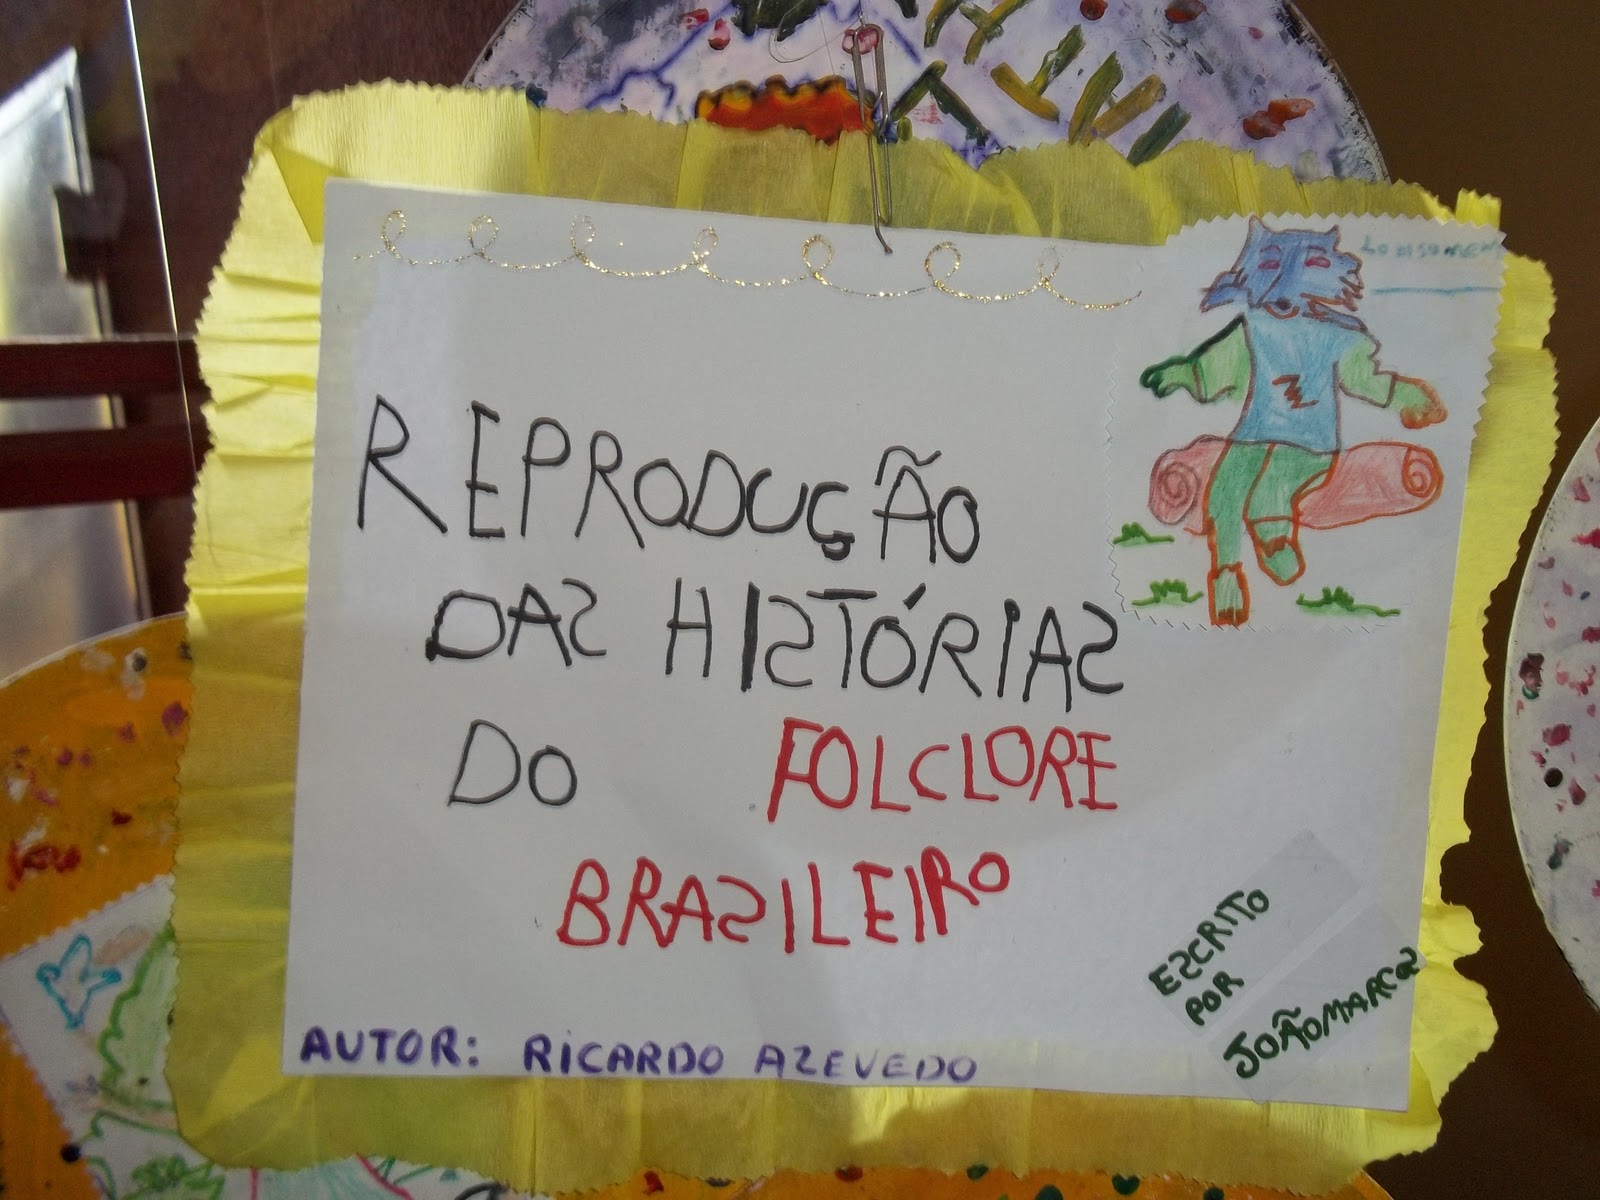 LOBISOMEM
REPRODUÇÃO
DAS HISTÓRIAS
DO FOLCLORE
BRASILEIRO
ESCRITO
POR
JOÃOMARCOS
AUTOR: RICARDO AZEVEDO